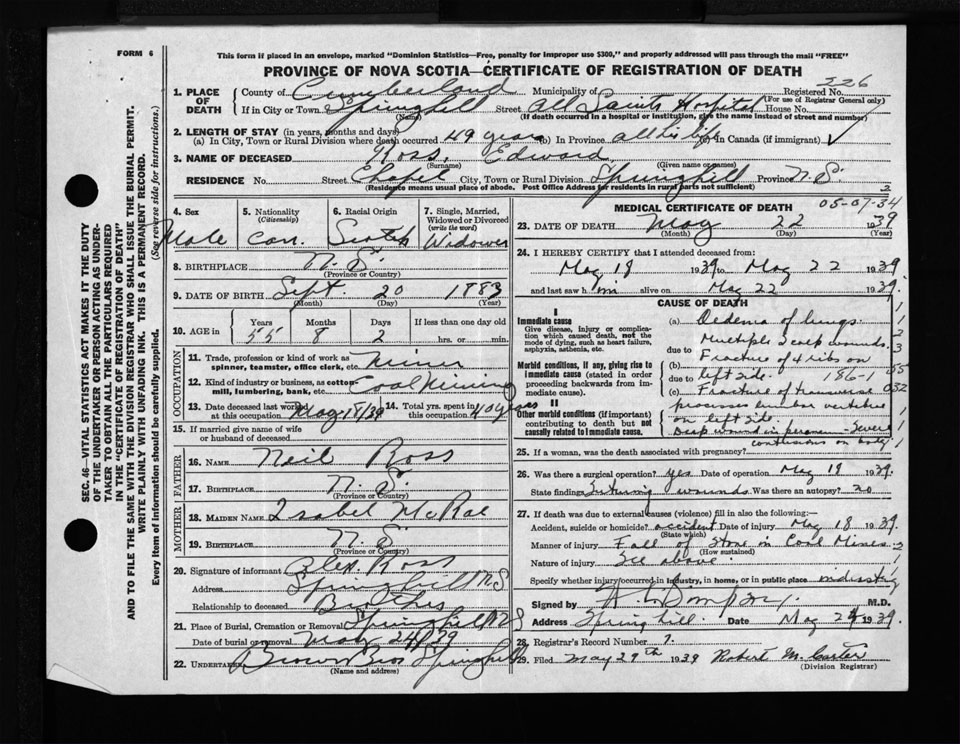 FORM 6
This form if placed in an envelope, marked "Dominion Statistics—Free, penalty for improper use $300," and properly addressed will pass through the mail "FREE"
PROVINCE OF NOVA SCOTIA—CERTIFICATE OF REGISTRATION OF DEATH
226
1. PLACE OF DEATH County of Cumberland Municipality of Registered No.
(For use of Registrar General only)
If in City or Town Springhill Street All Saints Hospital House No.
(Name) (If death occurred in a hospital or institution, give the name instead of street and number)
2. LENGTH OF STAY (in years, months and days)
(a) In City, Town or Rural Division where death occurred 49 years (b) In Province all his life (c) In Canada (if immigrant)
3. NAME OF DECEASED Ross, Edward
(Surname) (Given name or names)
RESIDENCE No. Street Chapel City, Town or Rural Division Springhill Province N.S.
(Residence means usual place of abode. Post Office Address for residents in rural parts not sufficient)
4. Sex Male
5. Nationality (Citizenship) Can.
6. Racial Origin Scotch
7. Single, Married, Widowed or Divorced (write the word) Widower
8. BIRTHPLACE N.S.
(Province or Country)
9. DATE OF BIRTH Sept. 20 1883
(Month) (Day) (Year)
10. AGE in Years Months Days If less than one day old
55 8 2 hrs. or min.
OCCUPATION
11. Trade, profession or kind of work as spinner, teamster, office clerk, etc. Miner
12. Kind of industry or business, as cotton mill, lumbering, bank, etc. Coal Mining
13. Date deceased last worked at this occupation May 18/39 14. Total yrs. spent in this occupation 40 years
15. If married give name of wife or husband of deceased
FATHER
16. NAME Neil Ross
17. BIRTHPLACE N.S.
(Province or Country)
MOTHER
18. MAIDEN NAME Isabel McRae
19. BIRTHPLACE N.S.
(Province or Country)
20. Signature of informant Alex. Ross
Address Springhill N.S
Relationship to deceased Brother
21. Place of Burial, Cremation or Removal Springhill N.S
Date of burial or removal May 24/39
22. UNDERTAKER Brown Bros Springhill
(Name and address)
MEDICAL CERTIFICATE OF DEATH
05-07-34
2
23. DATE OF DEATH May 22 1939
(Month) (Day) (Year)
24. I HEREBY CERTIFY that I attended deceased from:
May 18 1939 to May 22 1939
and last saw him alive on May 22 1939.
CAUSE OF DEATH
I
Immediate cause
Give disease, injury or complication which caused death, not the mode of dying, such as heart failure, asphyxia, asthenia, etc.
Morbid conditions, if any, giving rise to immediate cause (stated in order proceeding backwards from immediate cause).
II
Other morbid conditions (if important) contributing to death but not causally related to immediate cause.
(a) Oedema of lungs.
due to Multiple scalp wounds.
(b) Fracture of 4 ribs on
due to left side. 186-1
(c) Fracture of transverse
process lumbar vertebrae
on left side
Deep wound in perineum - severe
contusions on body
25. If a woman, was the death associated with pregnancy?
26. Was there a surgical operation? yes Date of operation May 18 1939.
State findings Suturing wounds Was there an autopsy? no
27. If death was due to external causes (violence) fill in also the following:—
Accident, suicide or homicide? accident Date of injury May 18 1939.
(State which)
Manner of injury Fall of Stone in Coal Mines
(How sustained)
Nature of injury See above
Specify whether injury occurred in industry, in home, or in public place industry
Signed by M.D.
Address Springhill. Date May 24 1939.
28. Registrar's Record Number 7.
29. Filed May 29th 1939 Robert M. Carter
(Division Registrar)
SEC. 46—VITAL STATISTICS ACT MAKES IT THE DUTY
OF THE UNDERTAKER OR PERSON ACTING AS UNDER-
TAKER TO OBTAIN ALL THE PARTICULARS REQUIRED
IN THE "CERTIFICATE OF REGISTRATION OF DEATH"
AND TO FILE THE SAME WITH THE DIVISION REGISTRAR WHO SHALL ISSUE THE BURIAL PERMIT.
WRITE PLAINLY WITH UNFADING INK. THIS IS A PERMANENT RECORD.
Every item of information should be carefully supplied. (See reverse side for instructions.)